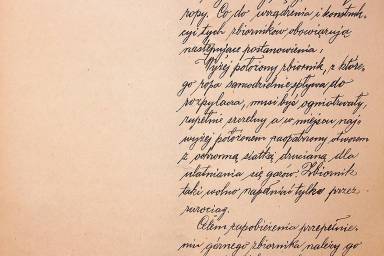 ropy. Co do urządzenia i konstruk-
cyi tych zbiorników obowiązują
następujące postanowienia:
Wyżej położony zbiornik, z które-
go ropa samodzielnie spływa do
rozpylacza, musi być ogniotrwały,
zupełnie szczelny a w miejscu naj-
wyżej położonem zaopatrzony otworem
z ochronną siatką drucianą dla
ulatniania się gazów. Zbiornik
taki wolno napełniać tylko przez
rurociąg.
Celem zapobieżenia przepełnie-
niu górnego zbiornika należy go